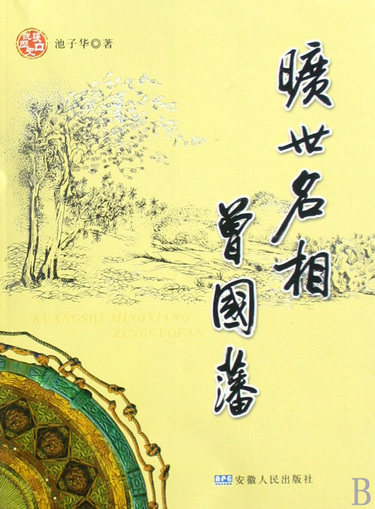 池子华◎著
曠世名相
曾國藩
KUANGSHI MINGXIANG
ZENGGUOFAN
安徽人民出版社
B